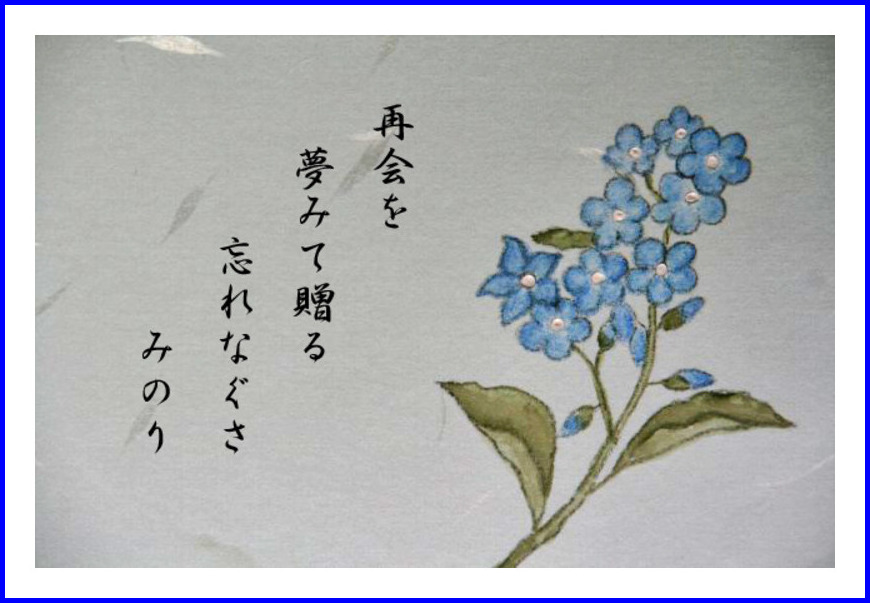 再会を
夢みて贈る
忘れなぐさ
みのり